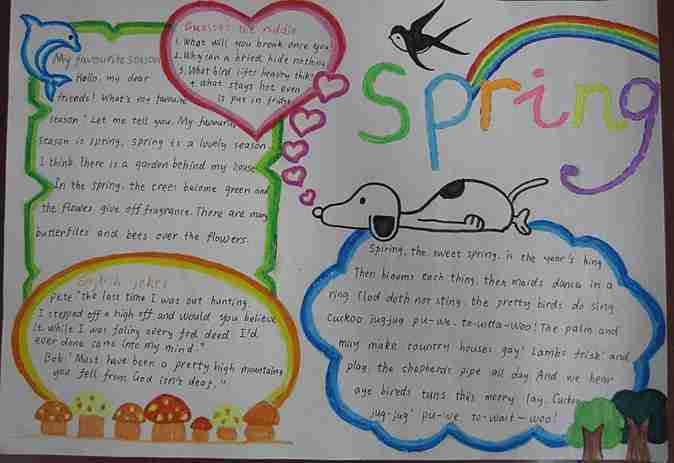 Spring
Guesses the riddle
1. What will you break once you
2. Why can a bried hide nothing
3. What bird lifts heavry thing
4. What stays hot even
is put in fridge
My favourite season
Hello, my dear
friends! What's not favourite
season? Let me tell you. My favourite
season is spring, spring is a lovely season
I think. There is a garden behind my house
In the spring, the trees become green and
the flowes give off fragrance. There are many
butterfiles and bees over the flowers.
English jokes
Pete "the last time I was out hunting,
I stepped off a high off and would you believe
it while I was faling every fed deed I'd
ever done came into my mind."
Bob: Must have been a pretty high mountaing
you fell from God isn't deaf."
Spiring, the sweet spring, is the year's hing
Then bioums each thing, then maids dance in a
ring. Clod doth not sting, the pretty birds do sing.
Cuckoo jug-jug pu-we, to-witta-woo! The palm and
may make country houses gay! Lambs frisk and
play, the shepherds pipe all day. And we hear
aye bireds tuns this merry lay, Cuckoo
jug-jug' pu-we to-wait-woo!